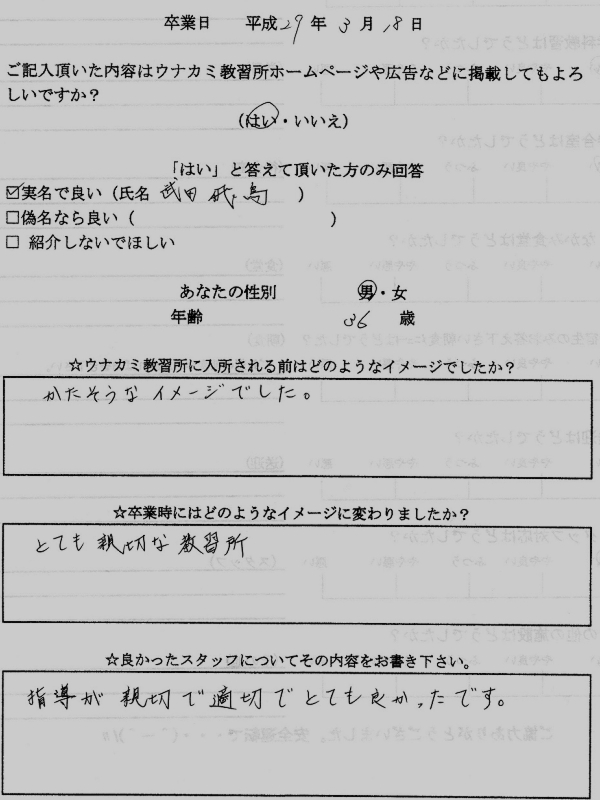 卒業日 平成29年3月18日
ご記入頂いた内容はウナカミ教習所ホームページや広告などに掲載してもよろ
しいですか?
(はい・いいえ)
「はい」と答えて頂いた方のみ回答
☑実名で良い(氏名 武田 )
□偽名なら良い( )
□ 紹介しないでほしい
あなたの性別 男・女
年齢 36 歳
☆ウナカミ教習所に入所される前はどのようなイメージでしたか?
かたそうなイメージでした。
☆卒業時にはどのようなイメージに変わりましたか?
とても親切な教習所
☆良かったスタッフについてその内容をお書き下さい。
指導が親切で適切でとても良かったです。